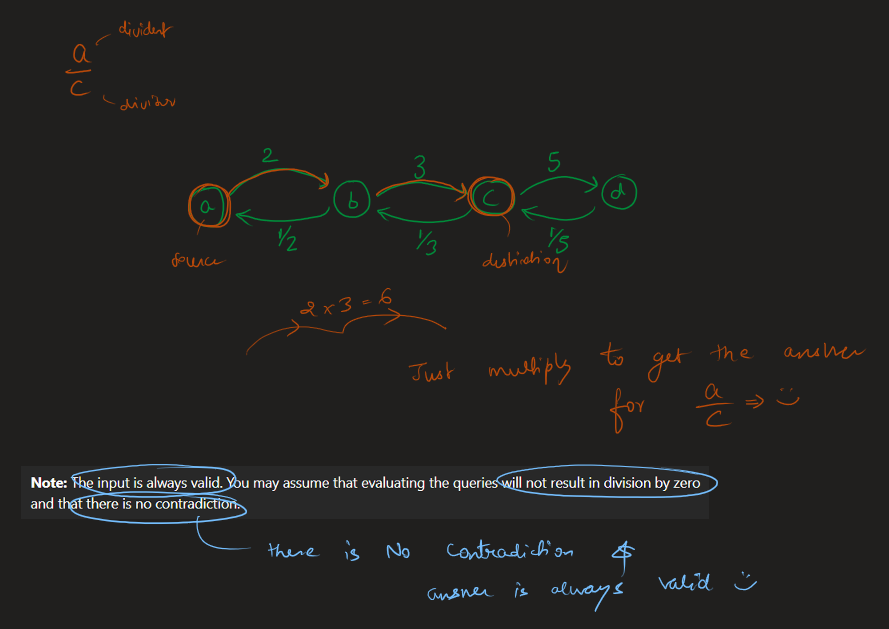 divident
a
c
divisor
2 3 5
a b c d
1/2 1/3 1/5
source destination
2 x 3 = 6
Just multiply to get the answer
for a/c ⇒ :)
Note: The input is always valid. You may assume that evaluating the queries will not result in division by zero
and that there is no contradiction.
there is No contradiction &
answer is always valid :)